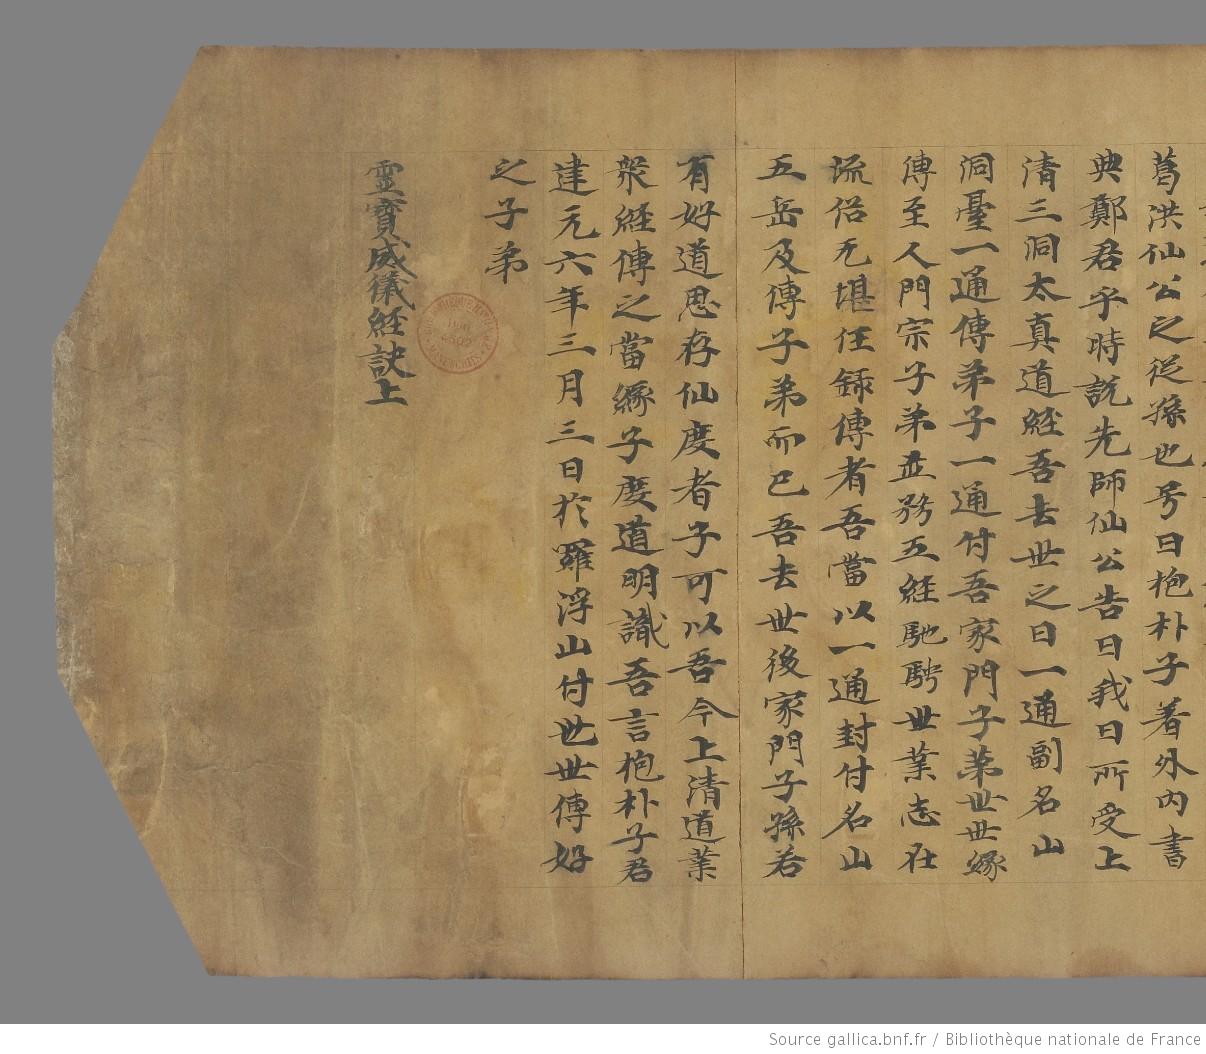 葛洪仙公之從孫也号曰抱朴子著外內書
典鄭君乎時說先師仙公告曰我日所受上
清三洞太真道經吾去世之日一通副名山
洞臺一通傳弟子一通付吾家門子弟世世緣
傳至人門宗子弟並務五經馳騁世業志在
流俗无堪任錄傳者吾當以一通封付名山
五岳及傳子弟而已吾去世後家門子孫若
有好道思存仙度者子可以吾今上清道業
衆經傳之當緣子度道明識吾言抱朴子君
建元六年三月三日於羅浮山付世世傳好
之子弟
靈寶威儀經訣上
Source gallica.bnf.fr / Bibliothèque nationale de France